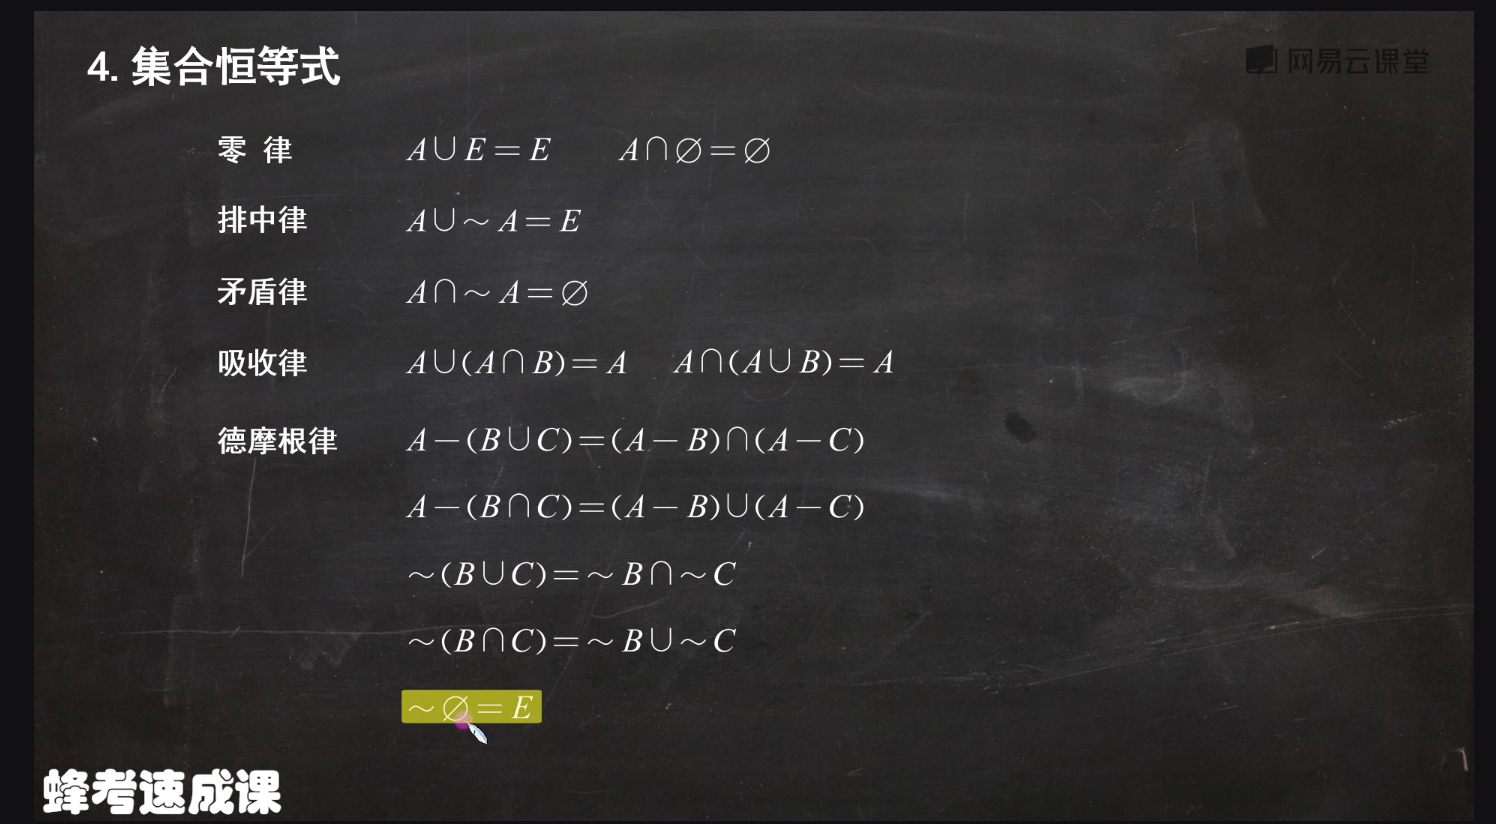 4. 集合恒等式
网易云课堂
零 律 A∪E=E A∩∅=∅
排中律 A∪~A=E
矛盾律 A∩~A=∅
吸收律 A∪(A∩B)=A A∩(A∪B)=A
德摩根律 A-(B∪C)=(A-B)∩(A-C)
A-(B∩C)=(A-B)∪(A-C)
~(B∪C)=~B∩~C
~(B∩C)=~B∪~C
~∅=E
蜂考速成课